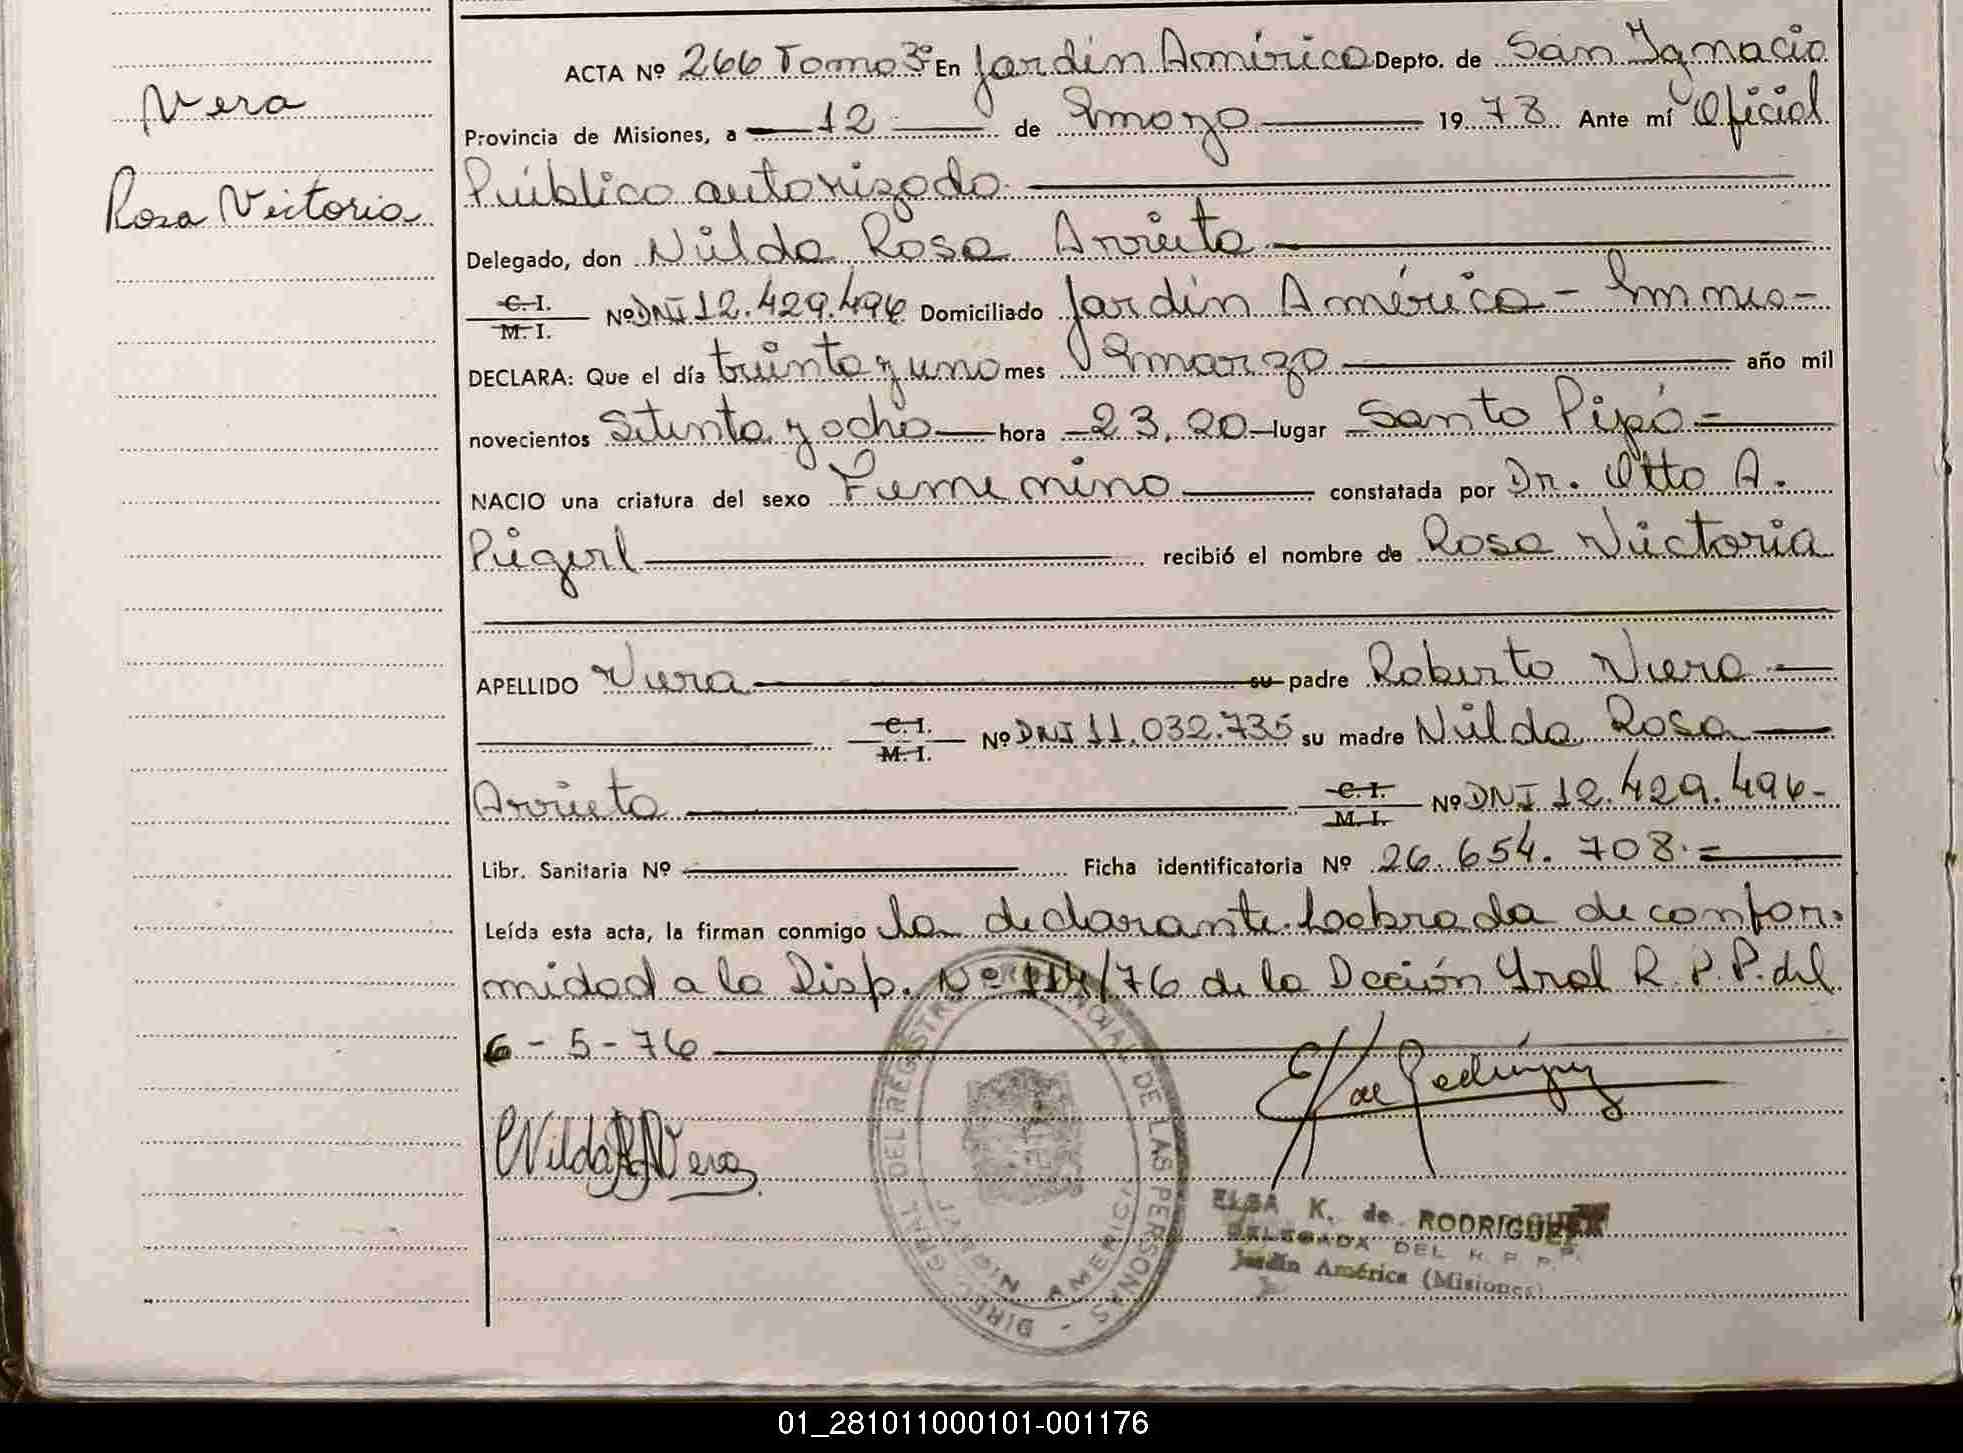 Vera
Rosa Victoria
ACTA Nº 266 Tomo 3º En Jardín América Depto. de San Ignacio
Provincia de Misiones, a 12 de mayo 1978 Ante mí Oficial
Público autorizado
Delegado, don Nilda Rosa Arrieta
C. I.
M. I. Nº DNI 12.429.496 Domiciliado Jardín América - Mnes -
DECLARA: Que el día treinta y uno mes marzo año mil
novecientos Setenta y ocho hora 23,20 lugar Santo Pipó =
NACIO una criatura del sexo Femenino constatada por Dr. Otto A.
Pigerl recibió el nombre de Rosa Victoria
APELLIDO Vera su padre Roberto Vera
C. I.
M. I. Nº DNI 11.032.735 su madre Nilda Rosa
Arrieta C. I. M. I. Nº DNI 12.429.496-
Libr. Sanitaria Nº Ficha identificatoria Nº 26.654.708.=
Leída esta acta, la firman conmigo la declarante. Labrada de confor-
midad a la Disp. Nº 114/76 de la Dcción Gral R. P. P. del
6-5-76
Nilda R de Vera
E K de Rodríguez
DIREC. GRAL. DEL REGISTRO PROVINCIAL DE LAS PERSONAS -
JARDIN AMERICA
ELSA K. de RODRIGUEZ
DELEGADA DEL R. P. P.
Jardín América (Misiones)
01_281011000101-001176